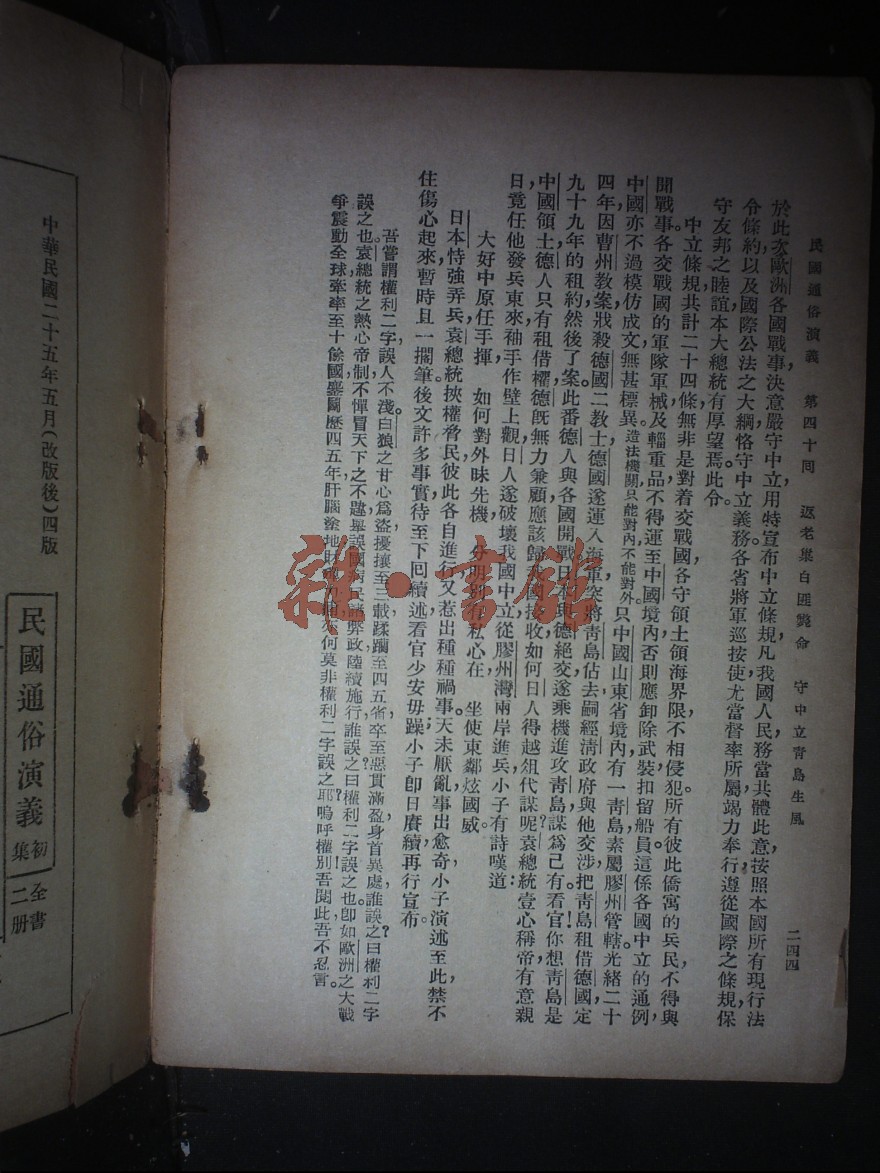 民國通俗演義　第四十回　返老巢白匪斃命　守中立青島生風　二四四
於此次歐洲各國戰事、決意嚴守中立、用特宣布中立條規、凡我國人民、務當共體此意、按照本國所有現行法
令條約、以及國際公法之大綱、恪守中立義務、各省將軍巡按使、尤當督率所屬、竭力奉行、遵從國際之條規、保
守友邦之睦誼、本大總統有厚望焉。此令。
中立條規、共計二十四條、無非是對着交戰國、各守領土領海界限、不相侵犯、所有彼此僑寓的兵民、不得與
聞戰事、各交戰國的軍隊軍械、及輜重品、不得運至中國境內、否則應卸除武裝、扣留船員、這係各國中立的通例、
中國亦不過模仿成文、無甚標異。造法機關、只能對內、不能對外。只中國山東省境內、有一青島、素屬膠州管轄。光緒二十
四年、因曹州教案、戕殺德國二教士、德國遂運入海軍、突將青島佔去、嗣經清政府與他交涉、把青島租借德國、定
九十九年的租約、然後了案、此番德人與各國開戰、日本與德絕交、遂乘機進攻青島、謀爲己有。看官！你想青島是
中國領土、德人只有租借權、德既無力兼顧、應該歸我國接收、如何日人得越俎代謀呢？袁總統壹心稱帝、有意親
日、竟任他發兵東來、袖手作壁上觀、日人遂破壞我國中立、從膠州灣兩岸進兵、小子有詩嘆道：
大好中原任手揮　如何對外昧先機　分明別有私心在　坐使東鄰炫國威。
日本恃強弄兵、袁總統挾權脅民、彼此各自進行、又惹出種種禍事、天未厭亂、事出愈奇、小子演述至此、禁不
住傷心起來、暫時且一擱筆、後文許多事實、待至下回續述、看官少安毋躁、小子卽日賡續、再行宣布。
吾嘗謂權利二字、誤人不淺、白狼之甘心爲盜、擾攘至三載、蹂躪至四五省、卒至惡貫滿盈、身首異處、誰誤之？曰權利二字
誤之也。袁總統之熱心帝制、不憚冒天下之不韙、舉誤國病民諸弊政、陸續施行、誰誤之？曰權利二字誤之也。卽如歐洲之大戰
爭、震動全球、牽率至十餘國、鏖鬭歷四五年、肝腦塗地、財何莫非權利二字誤之耶！嗚呼權利！吾聞此吾不忍言。
中華民國二十五年五月（改版後）四版
民國通俗演義初集
全書二册
雜·書館